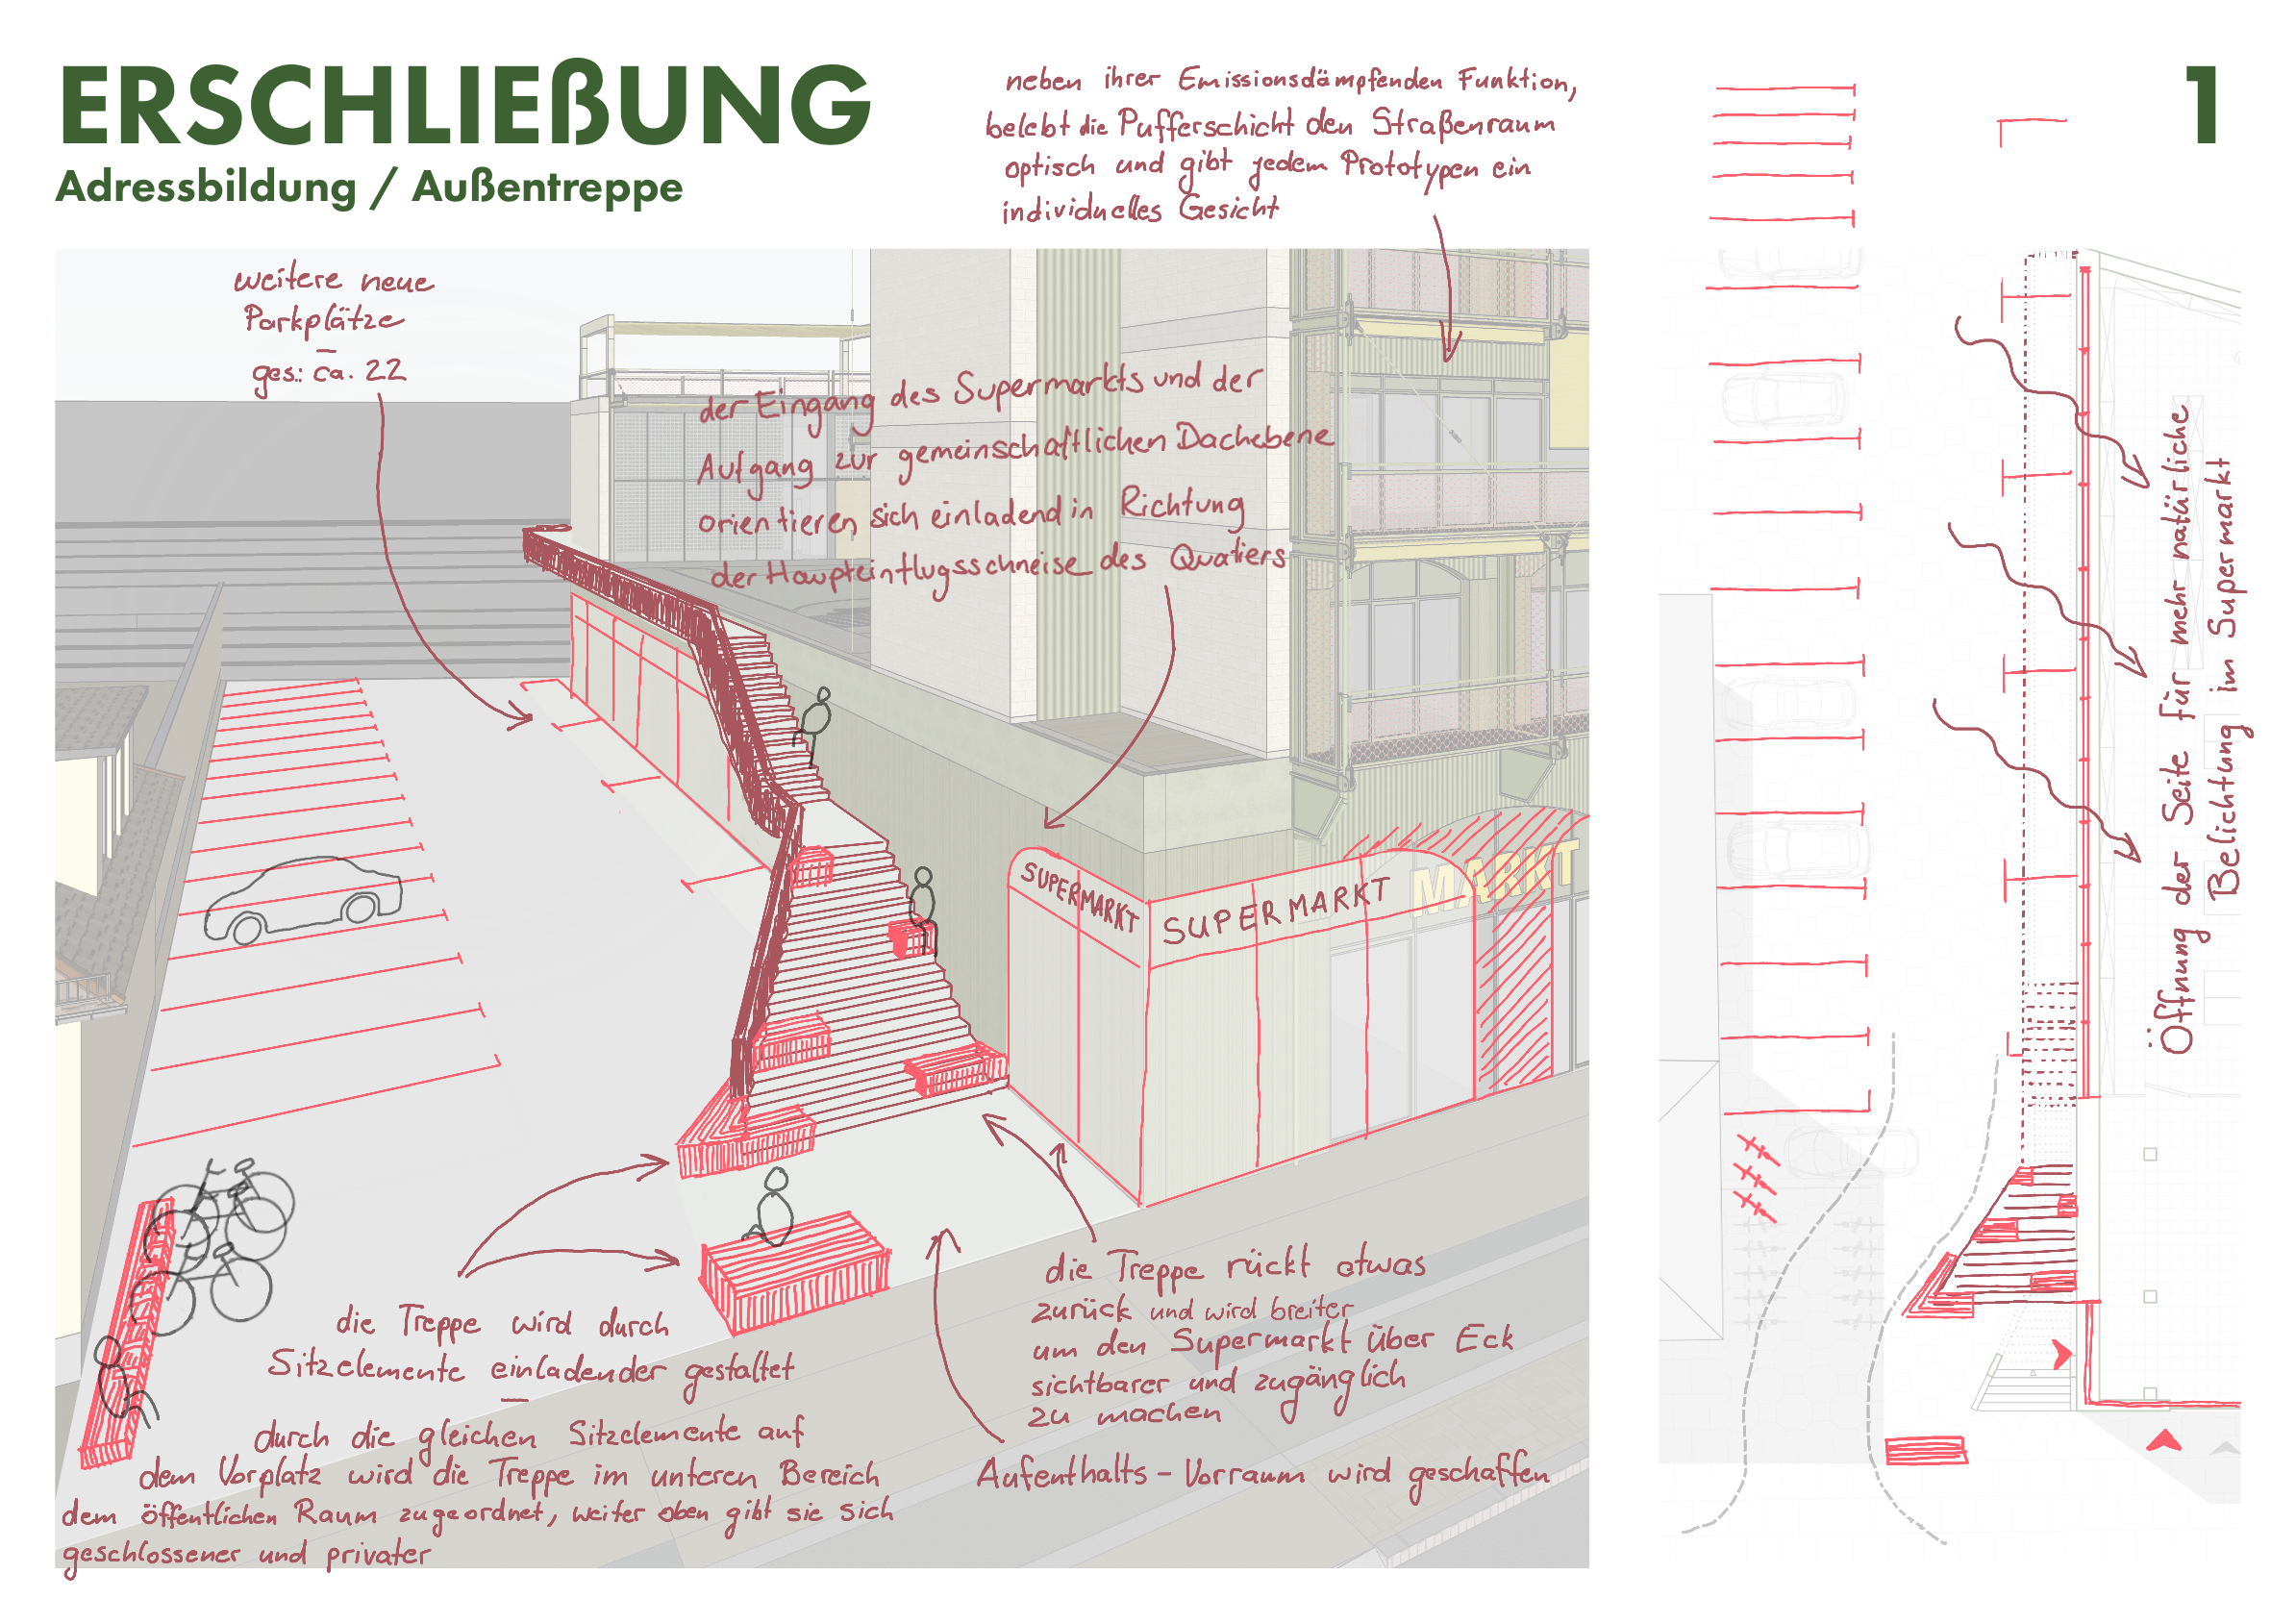 ERSCHLIEßUNG
Adressbildung / Außentreppe
1
neben ihrer Emissionsdämpfenden Funktion,
belebt die Pufferschicht den Straßenraum
optisch und gibt jedem Prototypen ein
individuelles Gesicht
weitere neue
Parkplätze
–
ges.: ca. 22
der Eingang des Supermarkts und der
Aufgang zur gemeinschaftlichen Dachebene
orientieren sich einladend in Richtung
der Haupteinflugsschneise des Quatiers
SUPERMARKT
SUPERMARKT
MARKT
die Treppe wird durch
Sitzelemente einladender gestaltet
–
durch die gleichen Sitzelemente auf
dem Vorplatz wird die Treppe im unteren Bereich
dem öffentlichen Raum zugeordnet, weiter oben gibt sie sich
geschlossener und privater
die Treppe rückt etwas
zurück und wird breiter
um den Supermarkt über Eck
sichtbarer und zugänglich
zu machen
Aufenthalts - Vorraum wird geschaffen
Öffnung der Seite für mehr natürliche
Belichtung im Supermarkt